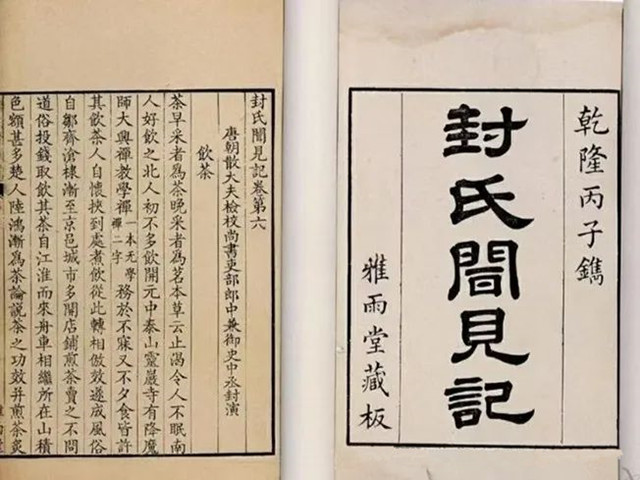 乾隆丙子鐫
封氏聞見記
雅雨堂藏板
封氏聞見記卷第六
唐朝散大夫檢校尚書吏部郎中兼御史中丞封演
飲茶
茶早采者爲茶晚采者爲茗本草云止渴令人不眠南
人好飲之北人初不多飲開元中泰山靈巖寺有降魔
師大興禪教學禪一本无學禪二字務於不寐又不夕食皆許
其飲茶人自懷挾到處煮飲從此轉相倣效遂成風俗
自鄒齊滄棣漸至京邑城市多開店鋪煎茶賣之不問
道俗投錢取飲其茶自江淮而來舟車相繼所在山積
色額甚多楚人陸鴻漸爲茶論說茶之功效并煎茶炙